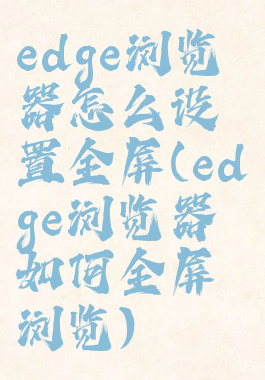 edge浏览
器怎么设
置全屏(ed
ge浏览器
如何全屏
浏览)